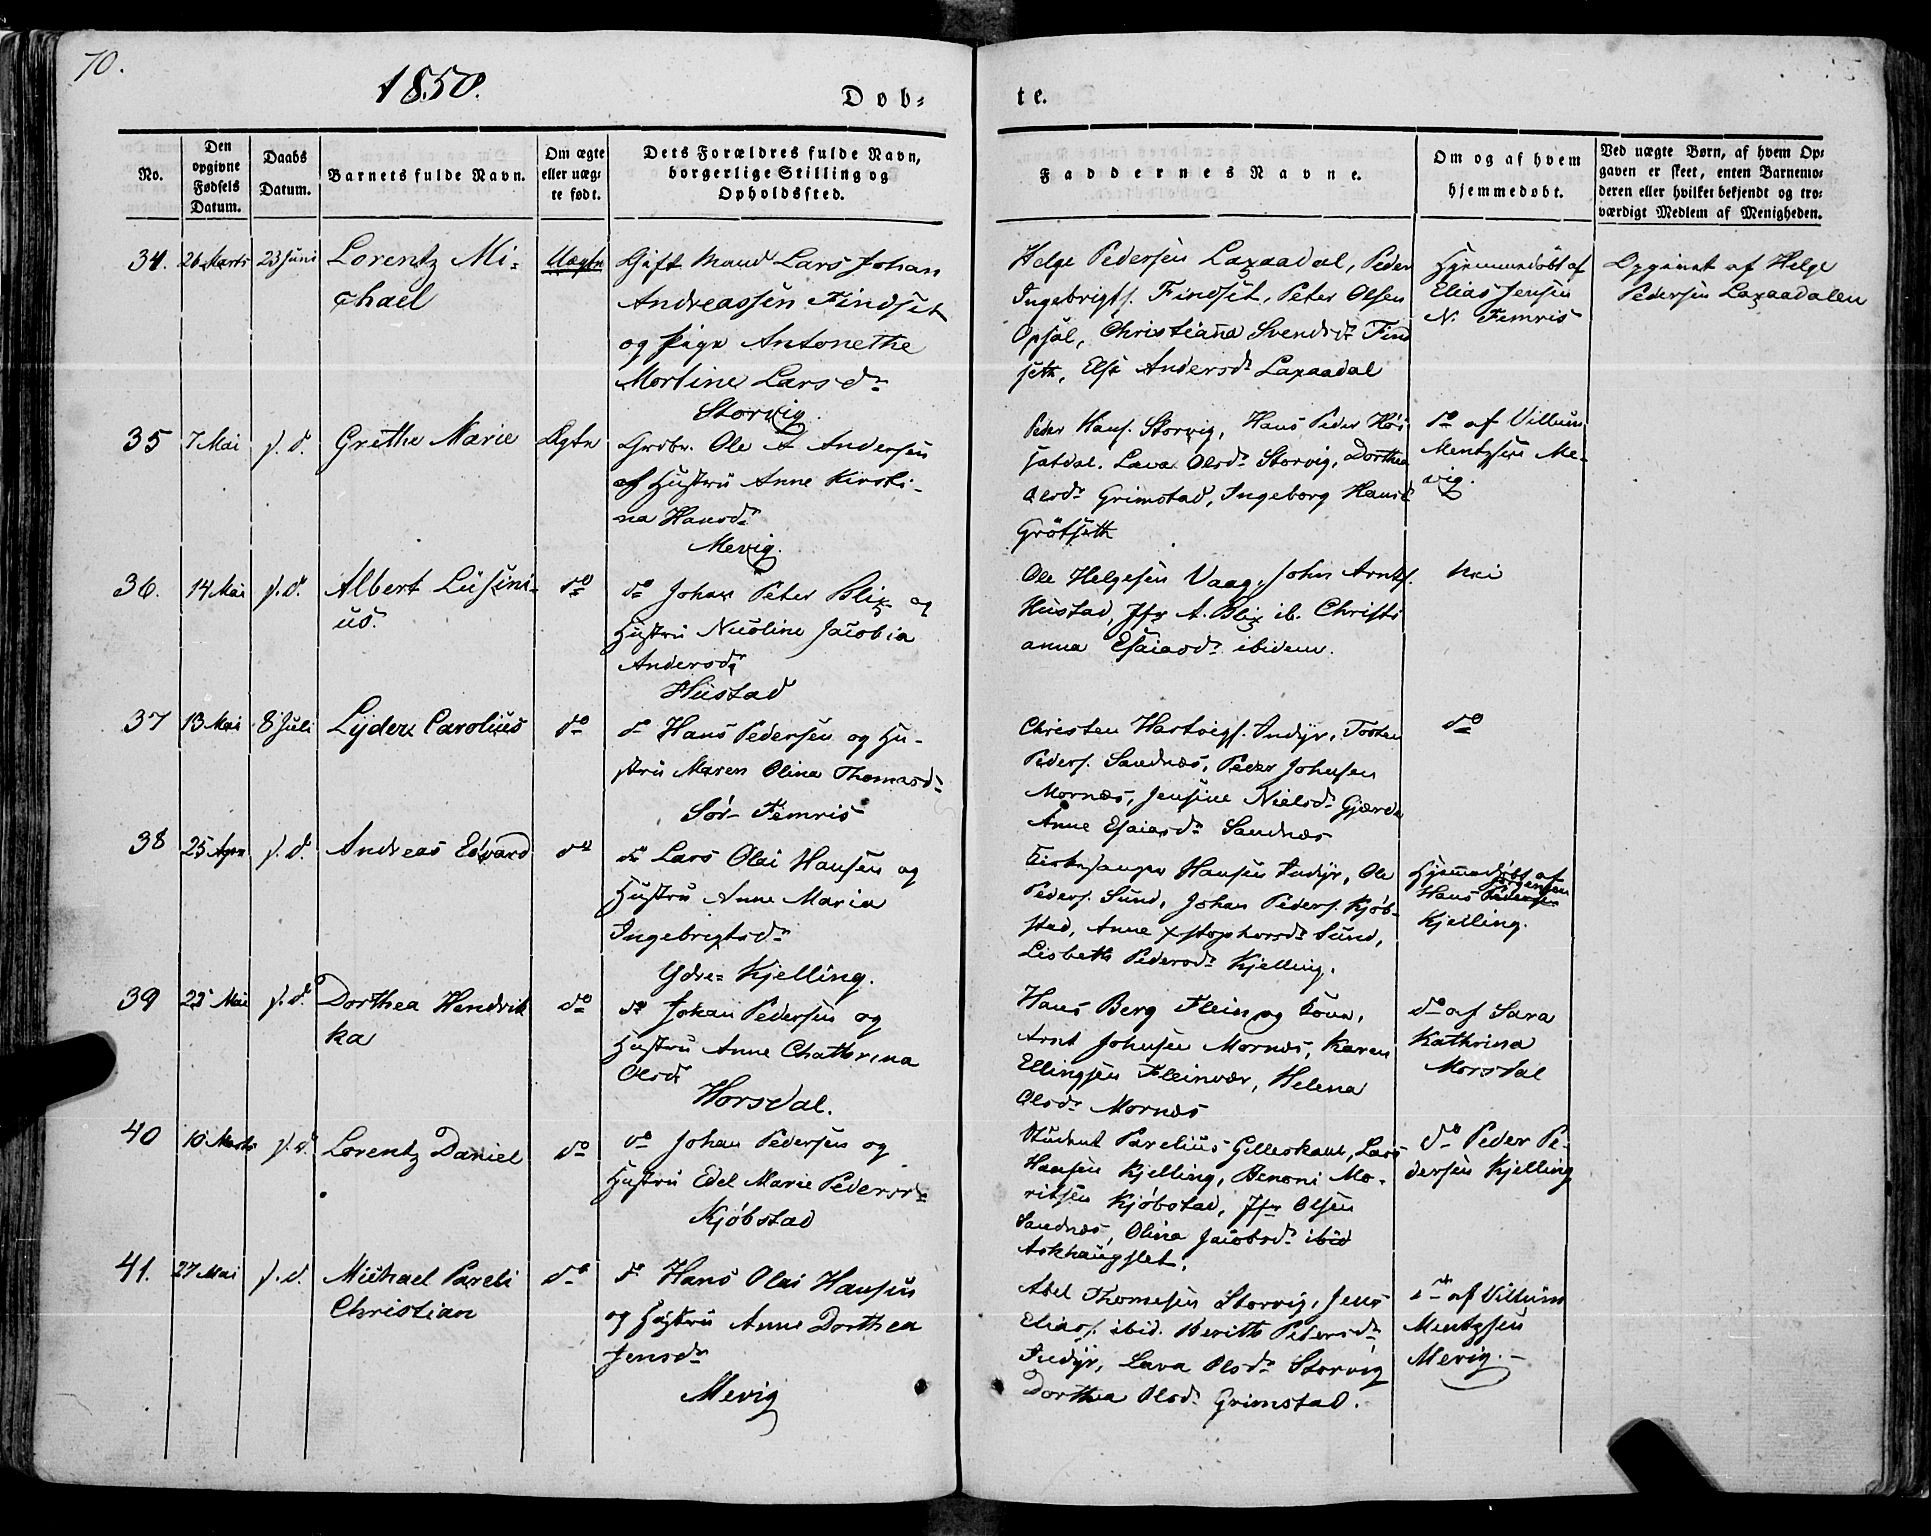 70.
1850.
Døb-
te.
No.
Den opgivne Fødsels Datum.
Daabs Datum.
Barnets fulde Navn.
Om ægte eller uægte født.
Dets Forældres fulde Navn, borgerlige Stilling og Opholdssted.
Faddernes Navne.
Om og af hvem hjemmedøbt.
Ved uægte Børn, af hvem Op-
gaven er skeet, enten Barnemo-
deren eller hvilket bekjendt og tro-
værdigt Medlem af Menigheden.
34. 26 Marts 23 Juni Lorentz Mi-
chael
Uægte
Gift Mand Lars Johan
Andreassen Findset
og Pige Antonethe
Mortine Larsdr
Storvig.
Helge Pedersen Laxaadal, Peder
Ingebrigts. Findset, Peter Olsen
Opsal, Christiana Svendsdr Find
seth, Else Andersdr Laxaadal
Hjemmedøbt af
Elias Jensen
N. Femris
Opgivet af Helge
Pedersen Laxaadalen
35 7 Mai s. d. Grethe Marie
Ægte
Grdbr. Ole A Andersen
og Hustru Anne Kirsti-
na Hansdr
Mevig.
Peder Hans. Storvig, Hans Peder Høi
satdal. Lava Olsdr Storvig, Dorthea
Olsdr Grimstad, Ingeborg Hansd
Grøtseth
do af Villum
Mentzsen Me-
vig.
36. 14 Mai s. d. Albert Lusini-
us.
do
do Johan Peter Blix og
Hustru Nicoline Jacobia
Andersdr
Hustad
Ole Helgesen Vaag, John Arntz.
Hustad, Jfr A. Blix ib. Christi
anna Esaiasdr ibidem.
Nei
37 13 Mai 8 Juli Lyder Carolius
do
do Hans Pedersen og Hu-
stru Maren Olina Thomasdr
Sør-Femris
Christen Hartvigs. Indyr, Torsten
Peders. Sandnæs, Peder Johnsen
Mornæs, Jensine Nielsdr Gjærde
Anne Esaiasdr Sandnæs
do
38 25 Apr s. d. Andreas Edvard
do
do Lars Olai Hansen og
Hustru Anne Maria
Ingebrigtsdr
Ydre-Kjelling.
Kirkesanger Hansen Indyr, Ole
Peders. Sund, Johan Peders. Kjøb-
stad, Anne Xstophersdr Sund,
Lisbeth Pedersdr Kjelling.
Hjemmedøbt af
Jørgensen
Hans Pedersen
Kjelling.
39 22 Mai s. d. Dorthea Hendrik
ka
do
do Johan Pedersen og
Hustru Anne Chathrina
Olsdr
Horsdal.
Hans Berg Flein og Kone,
Arnt Johnsen Mornæs, Karen
Ellingsen Fleinvær, Helena
Olsdr Mornæs
do af Sara
Kathrina
Morsdal
40 10 Marts s. d. Lorentz Daniel
do
do Johan Pedersen og
Hustru Edel Marie Pedersdr
Kjøbstad
Student Parelius Gilleskaal, Lars
Hansen Kjelling, Benoni Mo-
ritsen Kjøbstad, Jfr Olsen
Sandnæs, Olina Jacobsdr ibid
Askhaugslet.
do Peder Pe-
dersen Kjelling
41. 27 Mai s. d. Michael Pareli
Christian
do
do Hans Olai Hansen
og Hustru Anne Dorthea
Jensdr
Mevig
Abel Thomesen Storvig, Jens
Elias. ibid. Berith Pedersdr
Indyr, Lava Olsdr Storvig
Dorthea Olsdr Grimstad.
do af Villum
Mentzsen
Mevig.